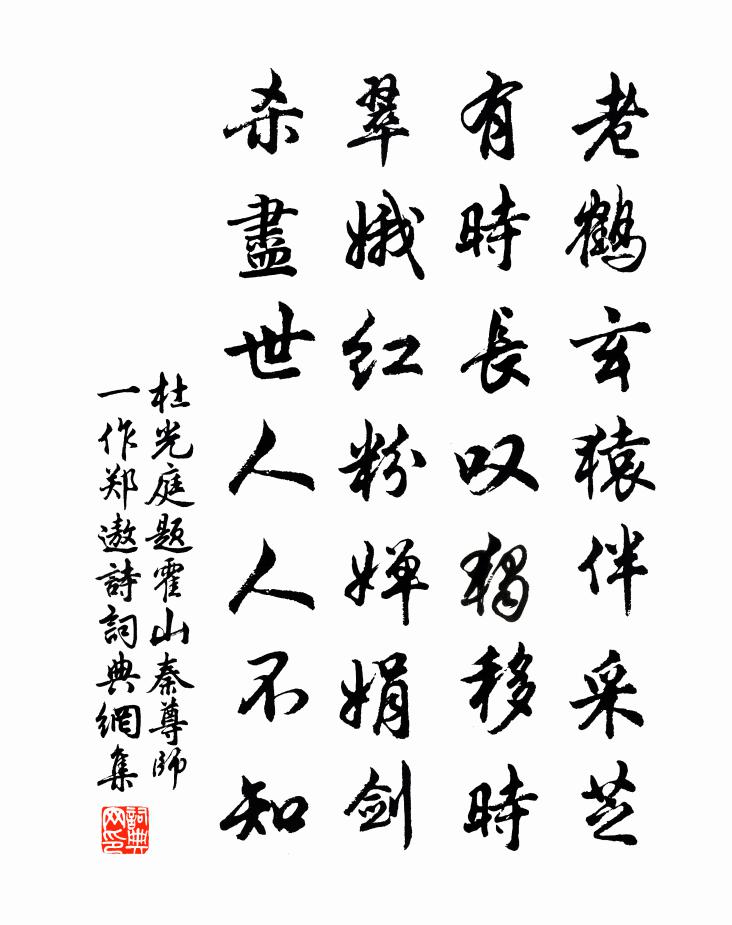 老鶴玄猿伴采芝
有時長叹獨移時
翠娥红粉婵娟剑
杀盡世人人不知
杜光庭题霍山秦尊師
一作郑遨詩詞典網集
詞典网印